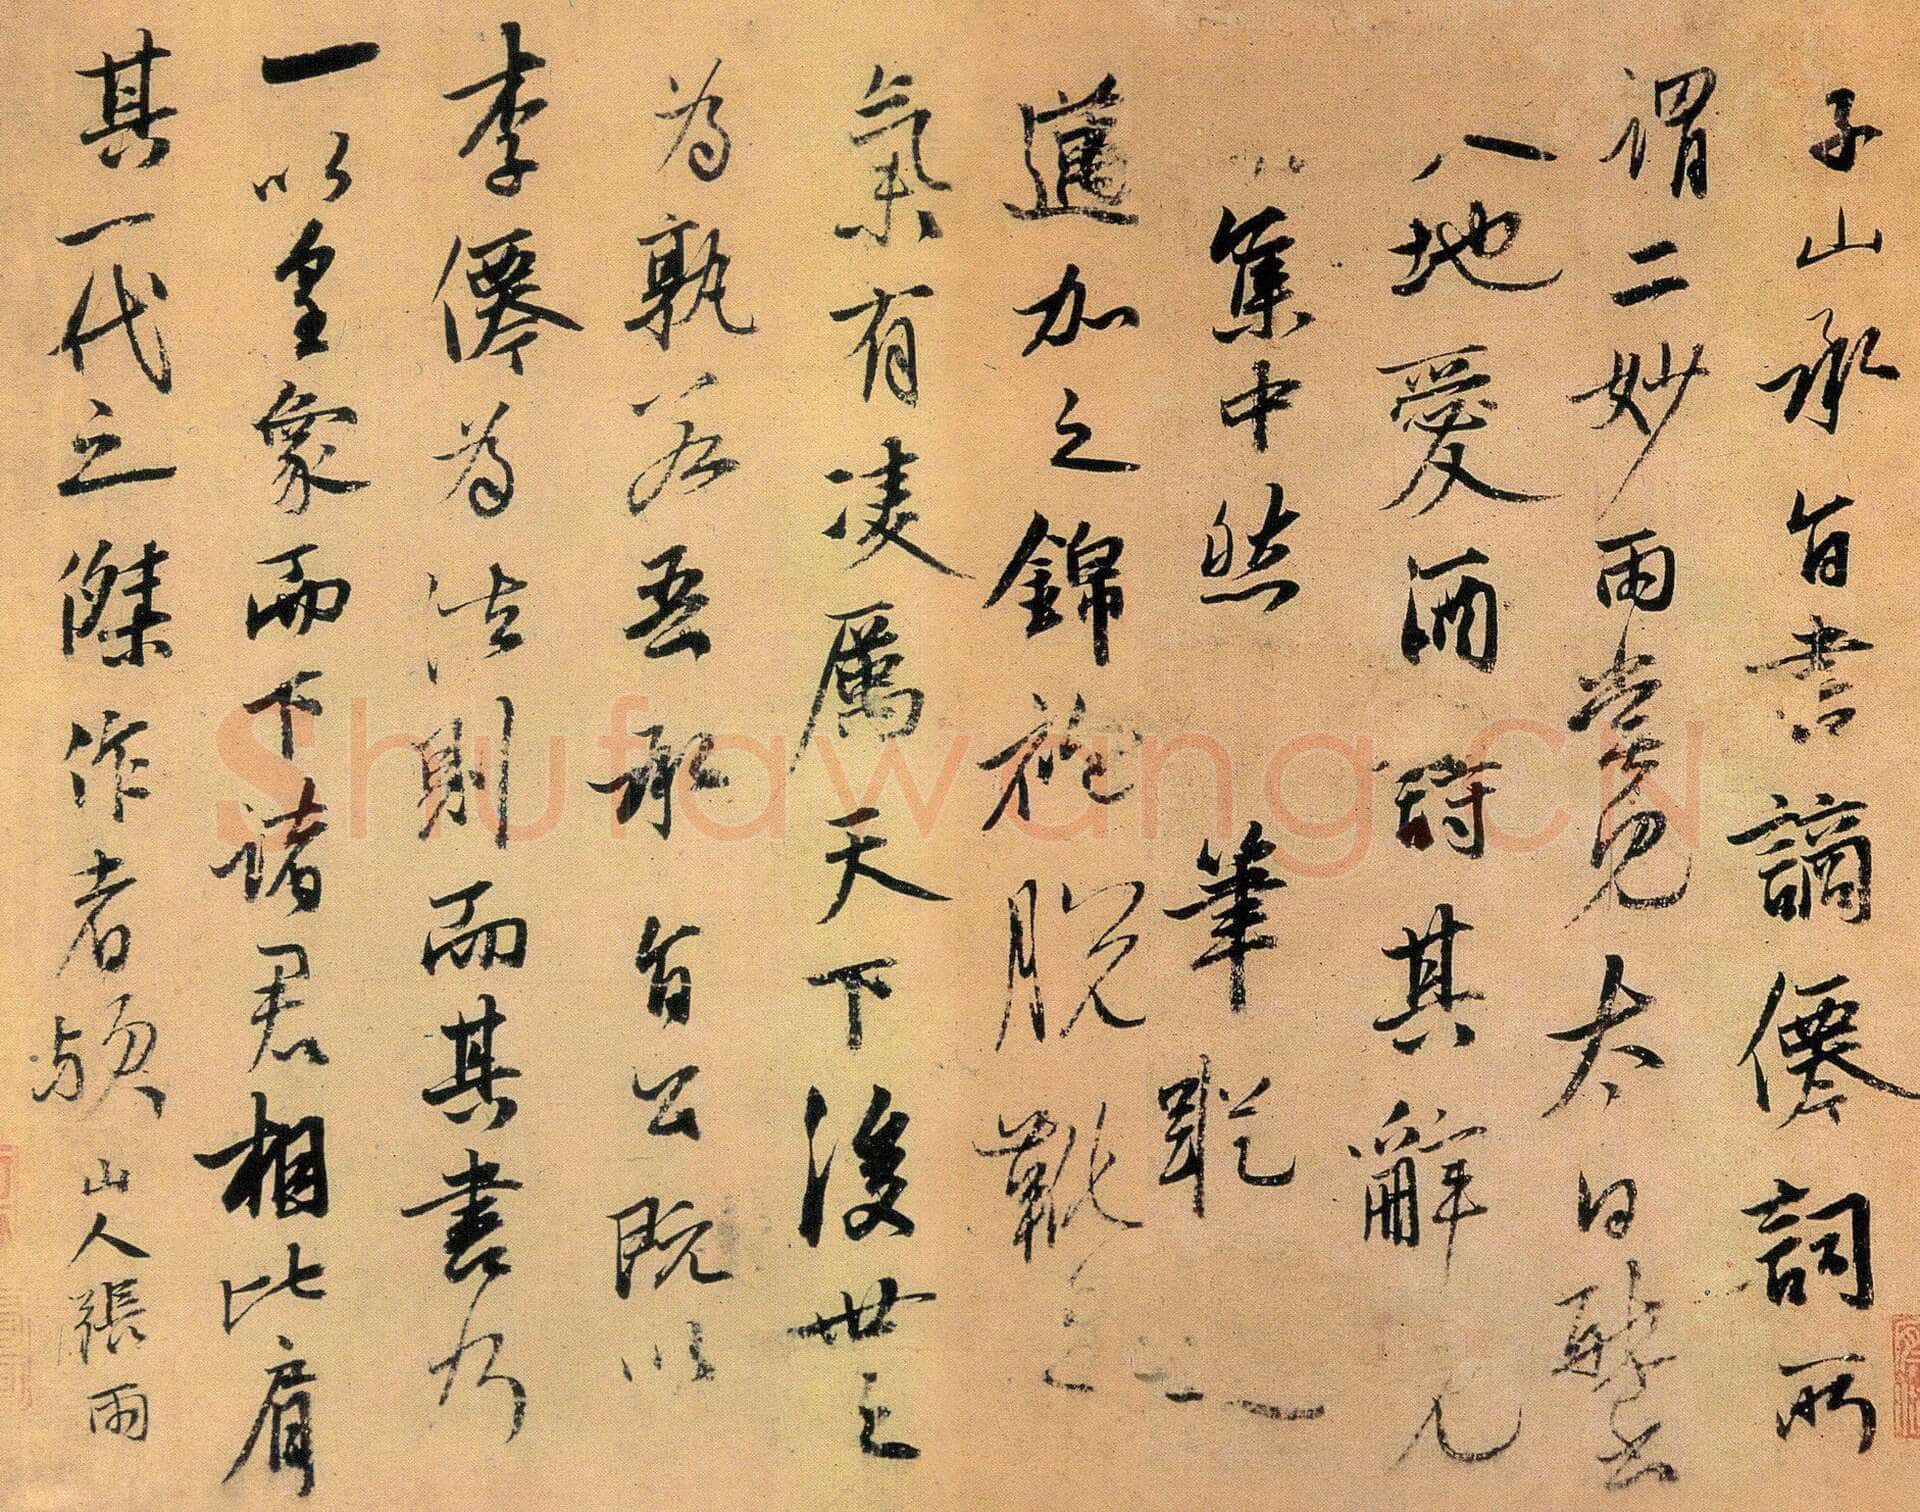 子山承旨書謫僊詞所
謂二妙雨嘗見太白醉
八地愛酒詩其辭見
集中然筆蹤
遒加之錦袍脫靴
氣有凌厲天下後世之
為孰若吾承旨公既以
李僊為法則而其書乃
一以皇象而下諸君相比肩
其一代之傑作者歟山人張雨
Shufawang.CN